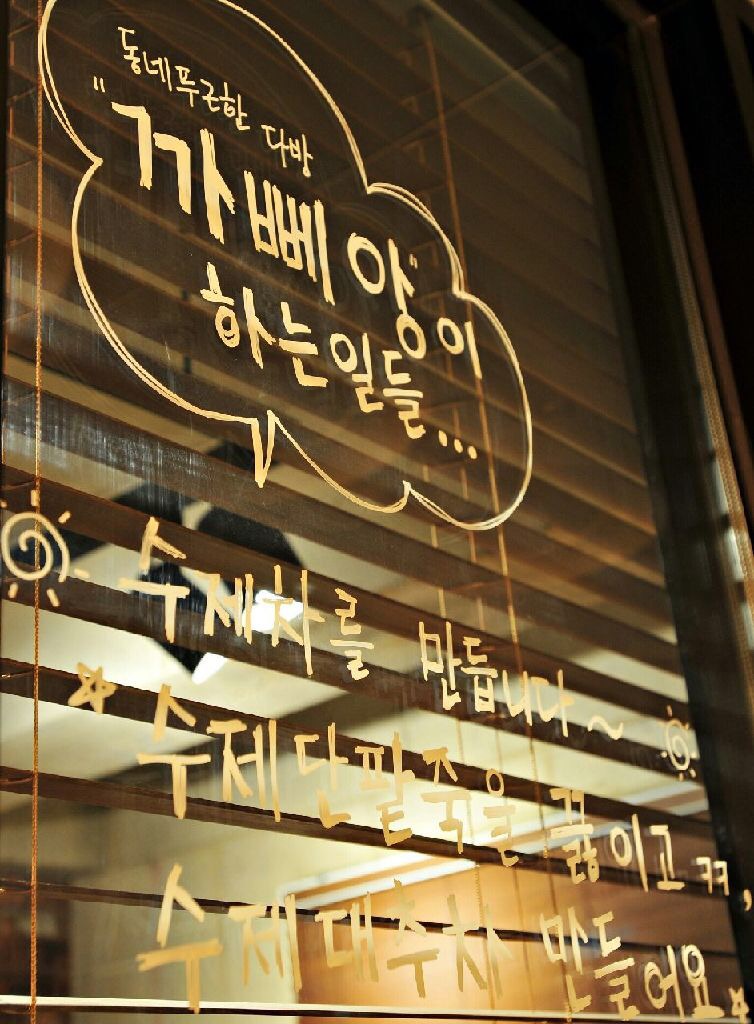 동네푸근한 다방
"까뻬양"이
하는일들...
수제차를 만듭니다~
수제단팥죽을 끓이고ㅋㅋ,
수제대추차 만들어요